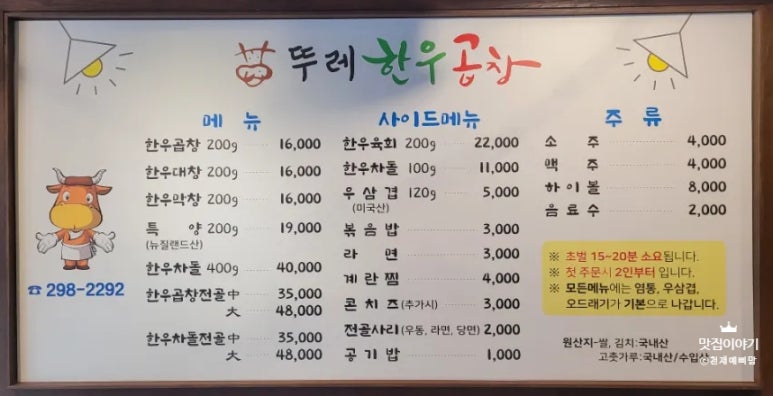 뚜레 한우곱창
메 뉴
한우곱창 200g 16,000
한우대창 200g 16,000
한우막창 200g 16,000
특 양 200g 19,000
(뉴질랜드산)
한우차돌 400g 40,000
한우곱창전골 中 35,000
大 48,000
한우차돌전골 中 35,000
大 48,000
☎ 298-2292
사이드메뉴
한우육회 200g 22,000
한우차돌 100g 11,000
우삼겹 120g 5,000
(미국산)
볶음밥 3,000
라 면 3,000
계란찜 4,000
콘치즈(추가시) 3,000
전골사리(우동, 라면, 당면) 2,000
공기밥 1,000
주 류
소 주 4,000
맥 주 4,000
하이볼 8,000
음료수 2,000
※ 초벌 15~20분 소요됩니다.
※ 첫 주문시 2인부터 입니다.
※ 모든메뉴에는 염통, 우삼겹,
오드래기가 기본으로 나갑니다.
원산지-쌀, 김치:국내산
고춧가루:국내산/수입산
맛집이야기